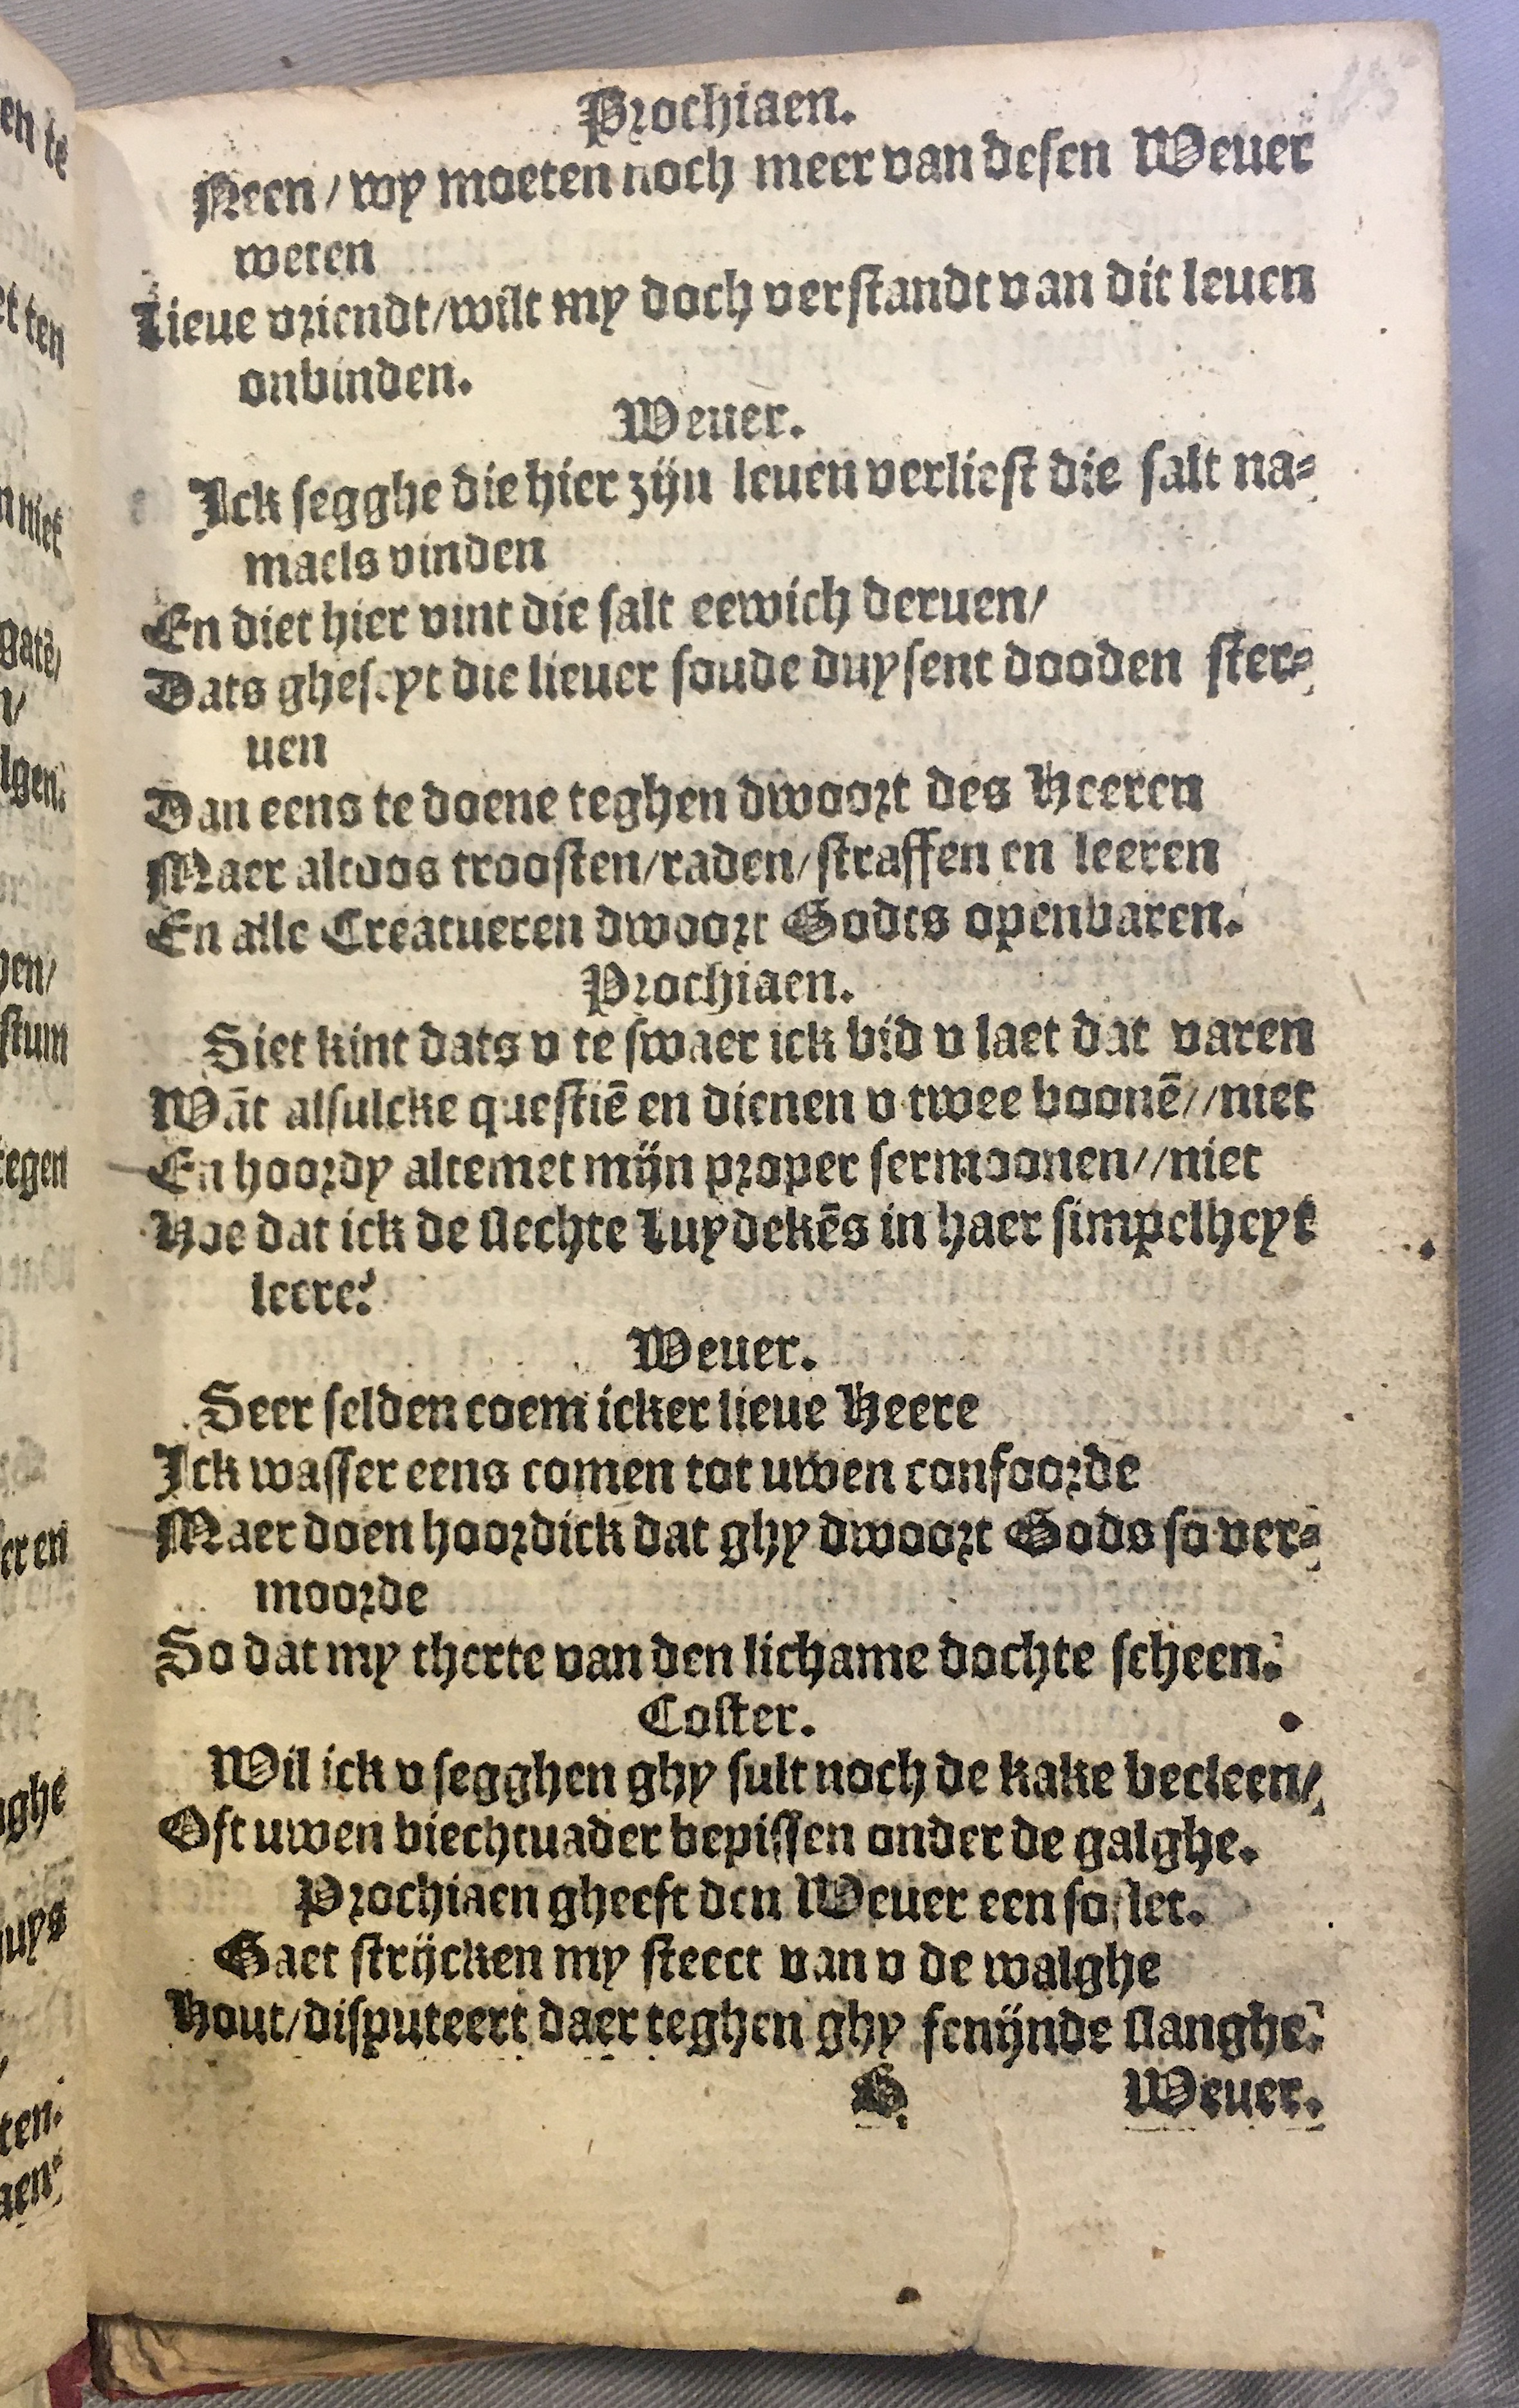 Prochiaen.
Neen / wy moeten noch meer van desen Weuer
weten
Lieue vriendt/wilt my doch verstandt van dit leuen
onbinden.
Weuer.
Ick segghe die hier zijn leuen verliest die salt na-
maels vinden
En diet hier vint die salt eewich deruen/
Dats gheseyt die lieuer soude duysent dooden ster-
uen
Dan eens te doene teghen dwoort des Heeren
Maer altoos troosten/raden/straffen en leeren
En alle Creatueren dwoort Godts openbaren.
Prochiaen.
Siet kint dats v te swaer ick bid v laet dat varen
Wāt alsulcke questiē en dienen v twee boonē//niet
En hoordy altemet mijn proper sermoonen//niet
Hoe dat ick de slechte Luydekēs in haer simpelheyt
leere?
Weuer.
Seer selden coem icker lieue Heere
Ick wasser eens comen tot uwen confoorde
Maer doen hoordick dat ghy dwoort Gods so ver-
moorde
So dat my therte van den lichame dochte scheen.
Coster.
Wil ick v segghen ghy sult noch de kake becleen/
Oft uwen biechtuader bepissen onder de galghe.
Prochiaen gheeft den Weuer een soflet.
Gaet strijcken my steect van v de walghe
Hout/disputeert daer teghen ghy fenijnde slanghe.
G. Weuer.
en te
et ten
n niet
gatē/
n/
lgen.
pen/
stum
tegen
er en
ghe
uys
ten.
aen.